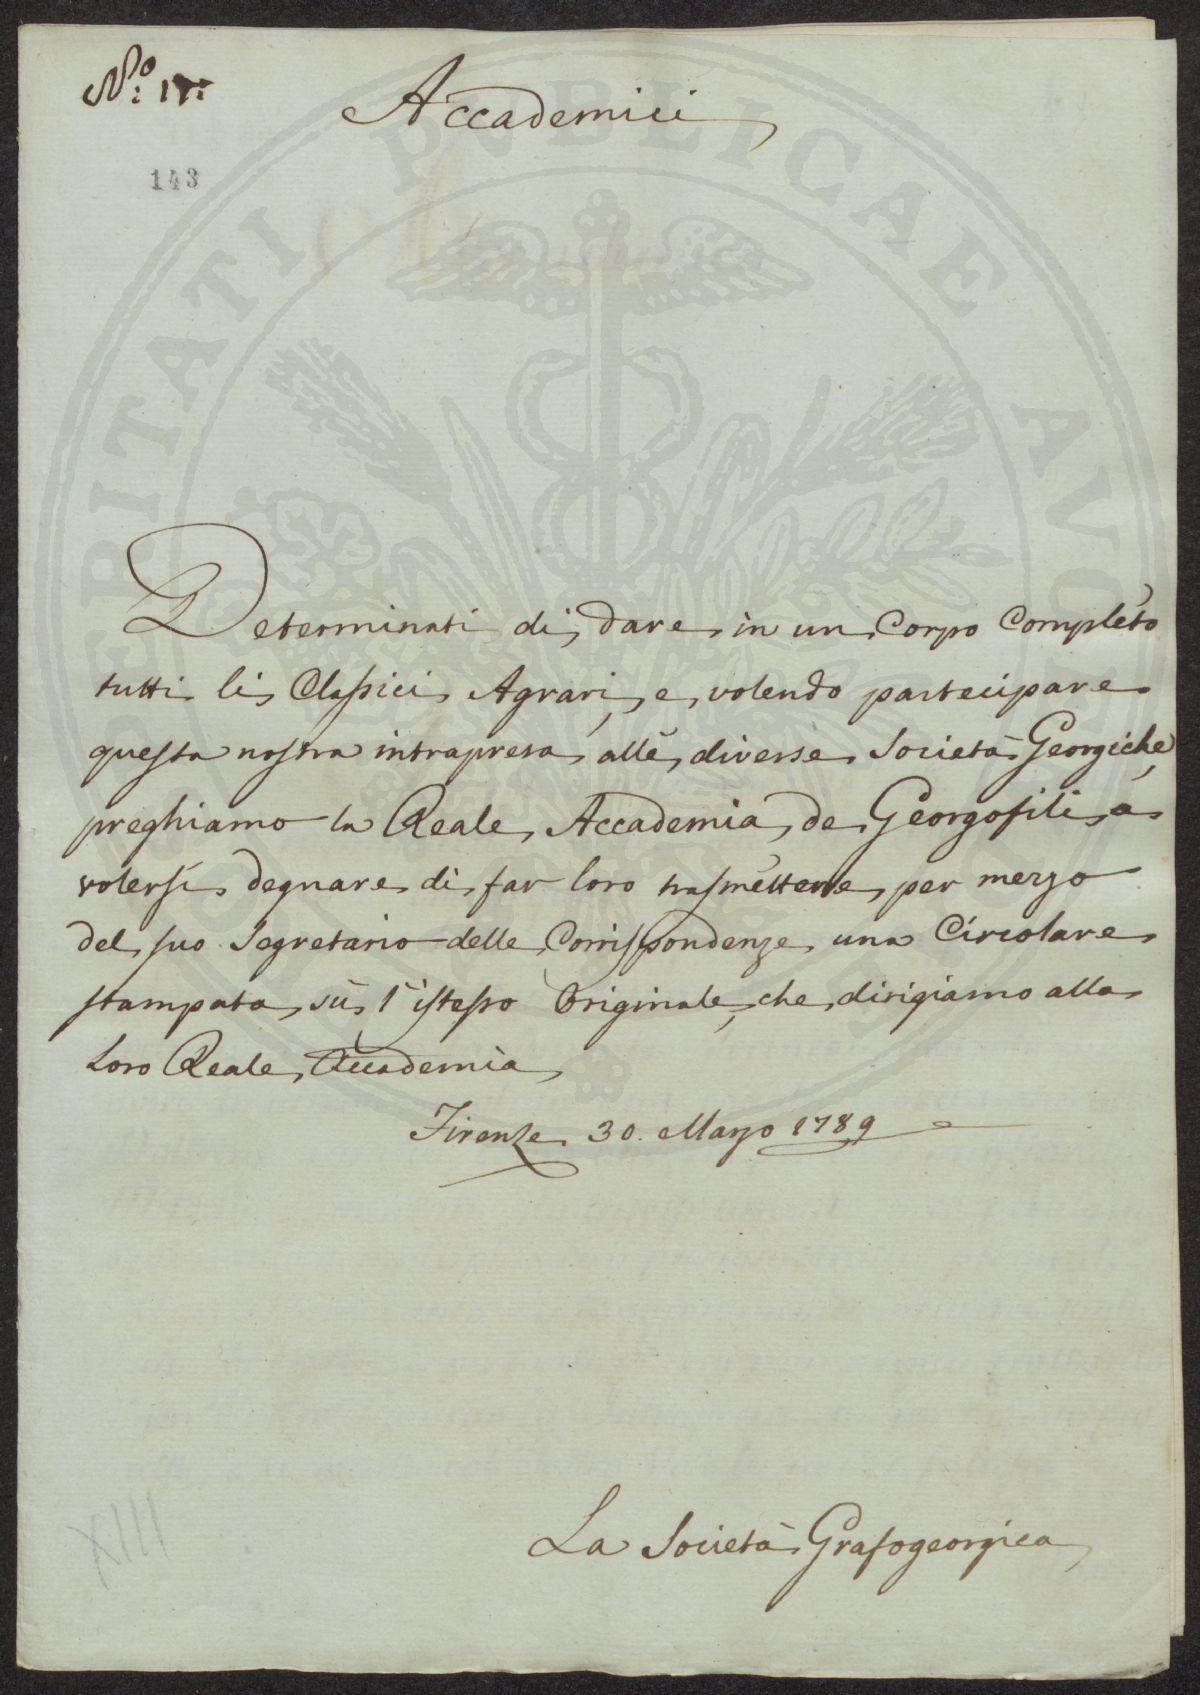 N.o 17:
Accademici
143
Determinati di dare in un Corpo Completo
tutti li Classici Agrarj, e volendo partecipare
questa nostra intrapresa alle diverse Società Georgiche,
preghiamo la Reale Accademia de Georgofili à
volersi degnare di far loro trasmettere per mezzo
del suo Segretario delle Corrispondenze una Circolare
stampata sù l'istesso Originale, che dirigiamo alla
loro Reale Accademia
Firenze 30. Marzo 1789
La Società Grafogeorgica
XIII
PUBLICAE